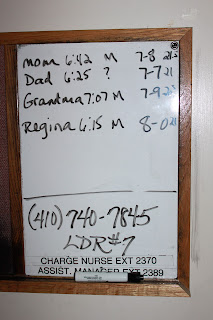 mom 6:42 M 7-8 21½
Dad 6:25 ? 7-7 21
Grandma 7:07 M 7-9
Regina 6:15 M 8-0 21
(410) 740-7845
LDR#7
CHARGE NURSE EXT 2370
ASSIST. MANAGER EXT 2389